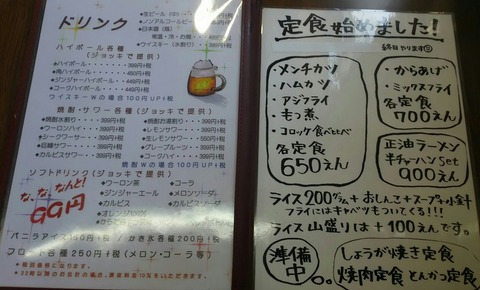 ドリンク
・生ビール
・ノンアルコールビール
・日本酒
常温・冷・お燗
・ウイスキー(水割り)
ハイボール各種
(ジョッキで提供)
・ハイボール・・・・399円+税
・角ハイボール・・・・450円+税
・ジンジャーハイボール・・・449円+税
・コークハイボール・・・449円+税
ウイスキーWの場合100円UP+税
焼酎・サワー各種(ジョッキで提供)
・焼酎水割り・・・399円+税
・焼酎お湯割り・・・399円+税
・ウーロンハイ・・・399円+税
・レモンサワー・・・399円+税
・シークワーサー・・・399円+税
・生レモンサワー
・巨峰サワー・・・399円+税
・グレープルーツ・・・399円+税
・カルピスサワー・・・399円+税
・コークハイ・・・399円+税
焼酎Wの場合100円UP+税
ソフトドリンク(ジョッキで提供)
な、な、なんと!
99円
・ウーロン茶
・コーラ
・ジンジャーエール
・メロンソーダ
・カルピス
・カルピスソーダ
・オレンジ100%
バニラアイス150円+税/かき氷各種200円+税
フロート各種250円+税(メロン・コーラ等)
定食始めました!
終日やります
・メンチカツ
・ハムカツ
・アジフライ
・もつ煮
・コロッケ食べくらべ
各定食
650えん
・からあげ
・ミックスフライ
各定食
700えん
正油ラーメン
半チャーハンset
900えん
ライス200グラム+おしんこ+スープ+小鉢
フライにはキャベツもついてくる!!!
ライス山盛りは+100えんです。
準備中。
しょうが焼き定食
焼肉定食 とんかつ定食